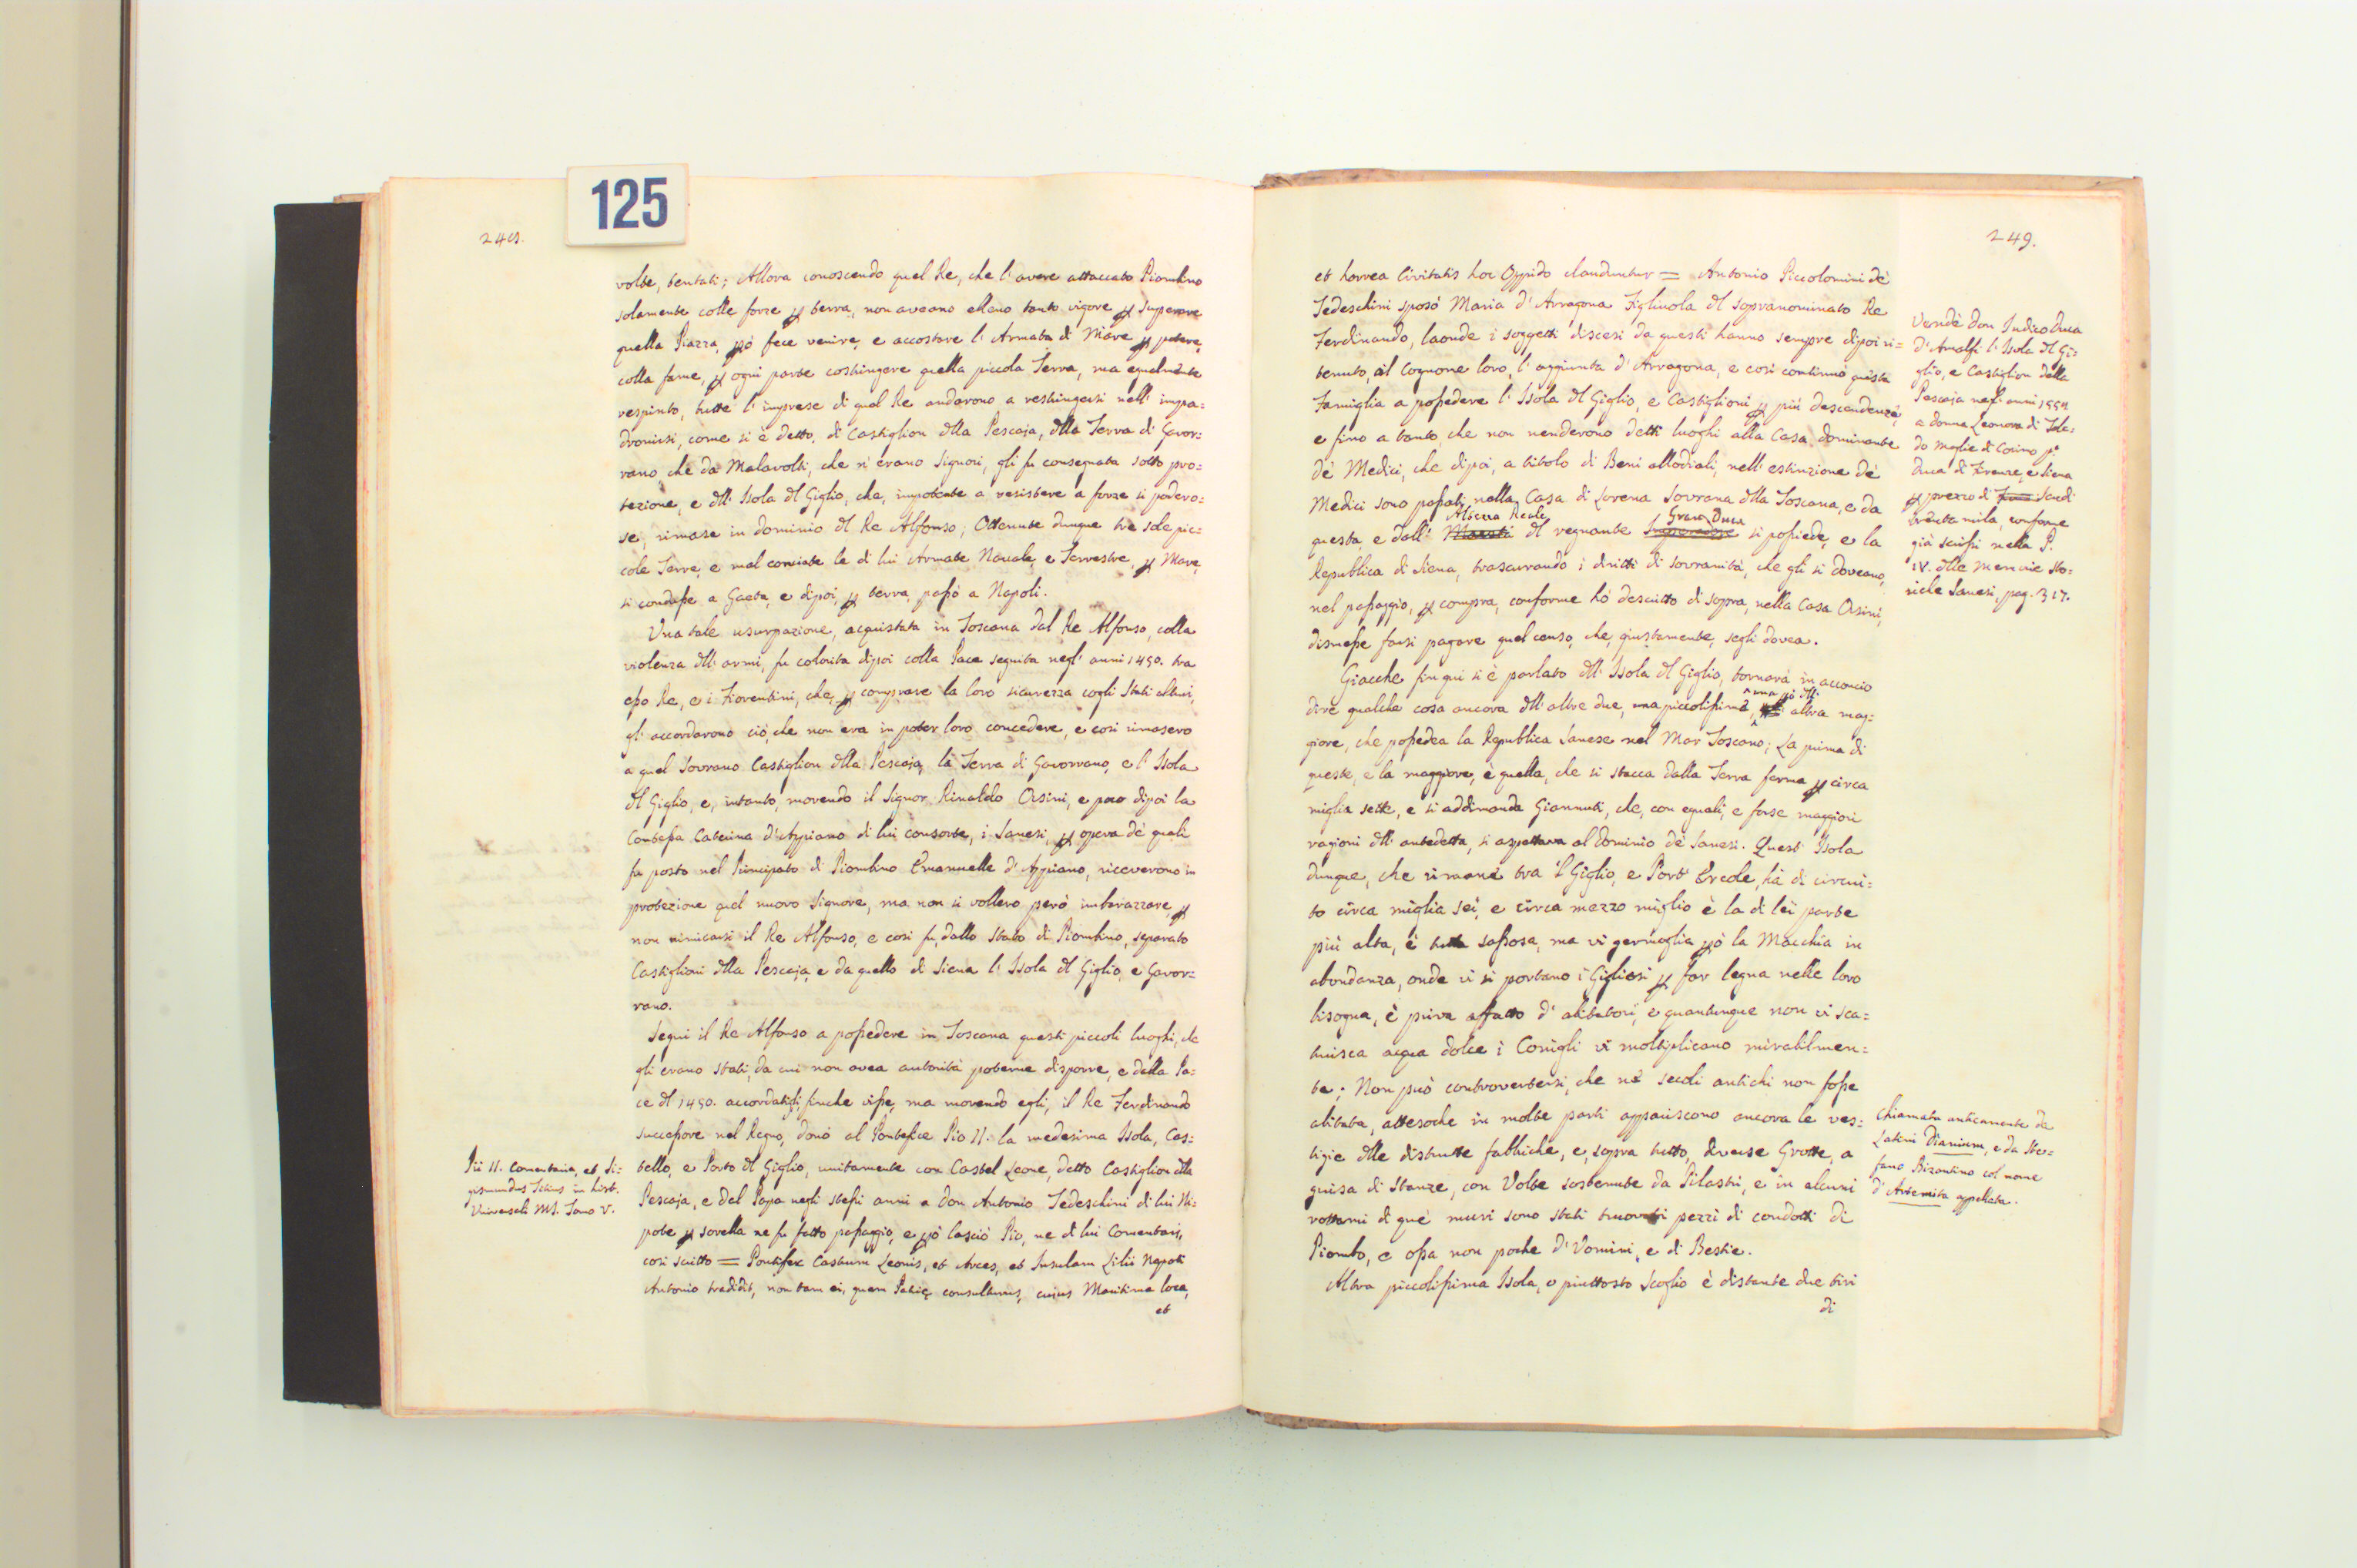 125
248.
volte, tentati; Allora conoscendo quel Re, che l'avere attaccato Piombino
solamente colle forze p terra, non aveano elleno tanto vigore p superare
quella Piazza, pò fece venire, e accostare l'Armata di Mare p potere,
colla fame, p ogni parte costringere quella piccola Terra, ma egualmente
respinto, tutte l'imprese di quel Re andarono a restringersi nell'impa=
dronirsi, come si è detto, di Castiglion dlla Pescaja, dlla Terra di Gavor=
rano, che da Malavolti, che n'erano Signori, gli fu consegnata sotto pro=
tezione, e dll'Isola dl Giglio, che, impotente a resistere a forze sì podero=
se, rimase in dominio dl Re Alfonso; Ottenute dunque tre sole pic=
cole Terre, e mal conciate le di lui Armate Navale, e Terrestre, p Mare,
si condusse a Gaeta, e dipoi, p terra, passò a Napoli.
Una tale usurpazione, acquistata in Toscana dal Re Alfonso, colla
violenza dll'armi, fu colorita dipoi colla Pace seguita negl'anni 1450. tra
esso Re, e i Fiorentini, che, p comprare la loro sicurezza cogli Stati altrui,
gl'accordarono ciò, che non era in poter loro concedere, e così rimasero
a quel Sovrano Castiglion dlla Pescaja, la Terra di Gavorrano, e l'Isola
dl Giglio, e, intanto, morendo il Signor Rinaldo Orsini, e poco dipoi la
Contessa Caterina d'Appiano di lui consorte, i Sanesi, p opera dè quali
fu posto nel Principato di Piombino Emanuelle d'Appiano, riceverono in
protezione quel nuovo Signore, ma non si vollero però imbarazzare, p
non nimicarsi il Re Alfonso, e così fu, dallo Stato di Piombino, separato
Castiglioni dlla Pescaja, e da quello di Siena l'Isola dl Giglio, e Gavor=
rano.
Seguì il Re Alfonso a possedere in Toscana questi piccoli luoghi, che
gli erano stati, da cui non avea autorità poterne disporre, e dalla Pa=
ce dl 1450. accordatigli, finche visse, ma morendo egli, il Re Ferdinando
successore nel Regno, donò al Pontefice Pio II. la medesima Isola, Cas=
tello, e Porto dl Giglio, unitamente con Castel Leone, detto Castiglion dlla
Pescaja, e dal Papa negli stessi anni a don Antonio Tedeschini di lui Ni=
pote p sorella ne fu fatto passaggio, e pò lasciò Pio, ne di lui Comentarj,
così scritto = Pontifex Castrum Leonis, et Arces, et Insulam Lilii Nepoti
Antonio tradidit, non tam ei, quam Patrię consulturus, cuius Maritima loca,
et
Pii II. Comentaria, et Si=
gismundus Titius in hist.
Universali MS. Tomo V.
249.
et horrea Civitatis hoc Oppido clauduntur = Antonio Piccolomini dè
Tedeschini sposò Maria d'Arragona Figliuola dl sopranominato Re
Ferdinando, laonde i soggetti discesi da questi hanno sempre dipoi ri=
tenuto, al Cognome loro, l'aggiunta d'Arragona, e così continuò questa
Famiglia a possedere l'Isola dl Giglio, e Castiglioni p più descendenze,
e fino a tanto, che non venderono detti luoghi alla Casa dominante
dè Medici, che dipoi, a titolo di Beni allodiali, nell'estinzione dè
Medici sono passati nella Casa di Lorena Sovrana dlla Toscana, e da
Altezza Reale Gran Duca
questa, e dall' dl regnante si possiede, e la
Republica di Siena, trascurando i diritti di sovranità, che gli si doveano,
nel passaggio, p compra, conforme hò descritto di sopra, nella Casa Orsini,
dismesse farsi pagare quel censo, che, giustamente, segli dovea.
Giacche fin qui si è parlato dll'Isola dl Giglio, tornarà in acconcio
dire qualche cosa ancora dll'altre due, una piccolissima, altra mag=
giore, che possedea la Republica Sanese nel Mar Toscano; La prima di
queste, e la maggiore, è quella, che si stacca dalla Terra ferma p circa
miglia sette, e si addimanda Giannuti, che, con eguali, e forse maggiori
ragioni dll'antedetta, si aspettava al Dominio dè Sanesi. Quest'Isola
dunque, che rimane tra 'l Giglio, e Port'Ercole, hà di circui=
to circa miglia sei, e circa mezzo miglio è la di lei parte
più alta, è tutta sassosa, ma vi germoglia pò la Macchia in
abondanza, onde vi si portano i Gigliesi p far legna nelle loro
bisogna, è priva affatto d'abitatori, e quantunque non vi sca=
turisca acqua dolce i Conigli vi moltiplicano mirabilmen=
te; Non può controvertersi, che nè secoli antichi non fosse
abitata, attesoche in molte parti appariscono ancora le ves=
tigie dlle distrutte fabbriche, e, sopra tutto, diverse Grotte, a
guisa di Stanze, con Volte sostenute da Pilastri, e in alcuni
rottami di què muri sono stati truovati pezzi di condotti di
Piombo, e ossa non poche d'Uomini, e di Bestie.
Altra piccolissima Isola, o piuttosto Scoglio è distante due tiri
di
Vendè don Indico Duca
d'Amalfi l'Isola dl Gi=
glio, e Castiglion della
Pescaja negl'anni 1558
a donna Leonora di Tole=
do Moglie di Cosimo pº
Duca di Firenze, e Siena
p prezzo di Scudi
trenta mila, conforme
già scrissi nella P.
IV. dlle Memorie Sto=
riche Sanesi, pag. 317.
Chiamata anticamente da
Latini Dianium, e da Ste=
fano Bizantino col nome
d'Artemita appellata.